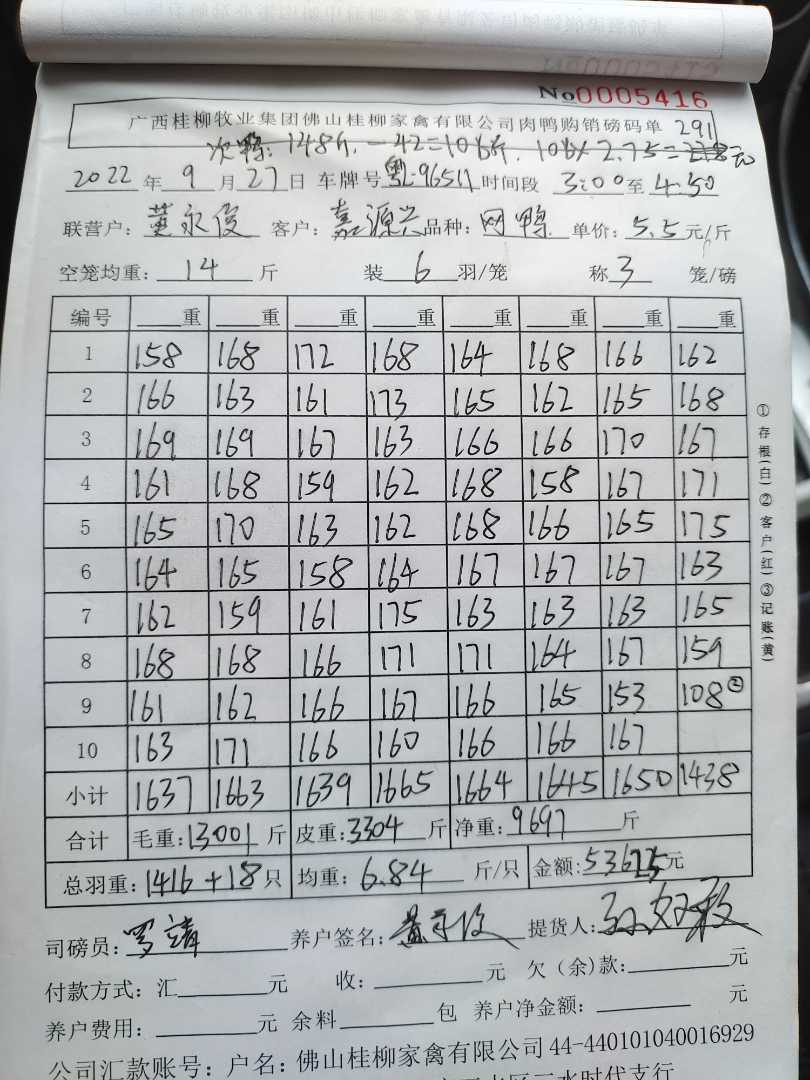 No0005416
广西桂柳牧业集团佛山桂柳家禽有限公司肉鸭购销磅码单
次鸭: 148斤. - 42=106斤. 106 x 2.75=291元
2022 年 9 月 27 日 车牌号 粤:96511 时间段 3:00 至 4:50
联营户: 黄永俊 客户: 嘉源兴 品种: 网鸭 单价: 5.5 元/斤
空笼均重: 14 斤 装 6 羽/笼 称 3 笼/磅
编号 重 重 重 重 重 重 重 重
1 158 168 172 168 164 168 166 162
2 166 163 161 173 165 162 165 168
3 169 169 167 163 166 166 170 167
4 161 168 159 162 168 158 167 171
5 165 170 163 162 168 166 165 175
6 164 165 158 164 167 167 167 163
7 162 159 161 175 163 163 163 165
8 168 168 166 171 171 164 167 159
9 161 162 166 167 166 165 153 108②
10 163 171 166 160 166 166 167
小计 1637 1663 1639 1665 1664 1645 1650 1438
合计 毛重: 13001 斤 皮重: 3304 斤 净重: 9697 斤
总羽重: 1416 + 18 只 均重: 6.84 斤/只 金额: 53625 元
司磅员: 罗靖 养户签名: 黄永俊 提货人:
付款方式: 汇 元 收: 元 欠(余)款: 元
养户费用: 元 余料 包 养户净金额: 元
公司汇款账号: 户名: 佛山桂柳家禽有限公司 44-440101040016929
三水时代支行
①存根(白)②客户(红)③记账(黄)